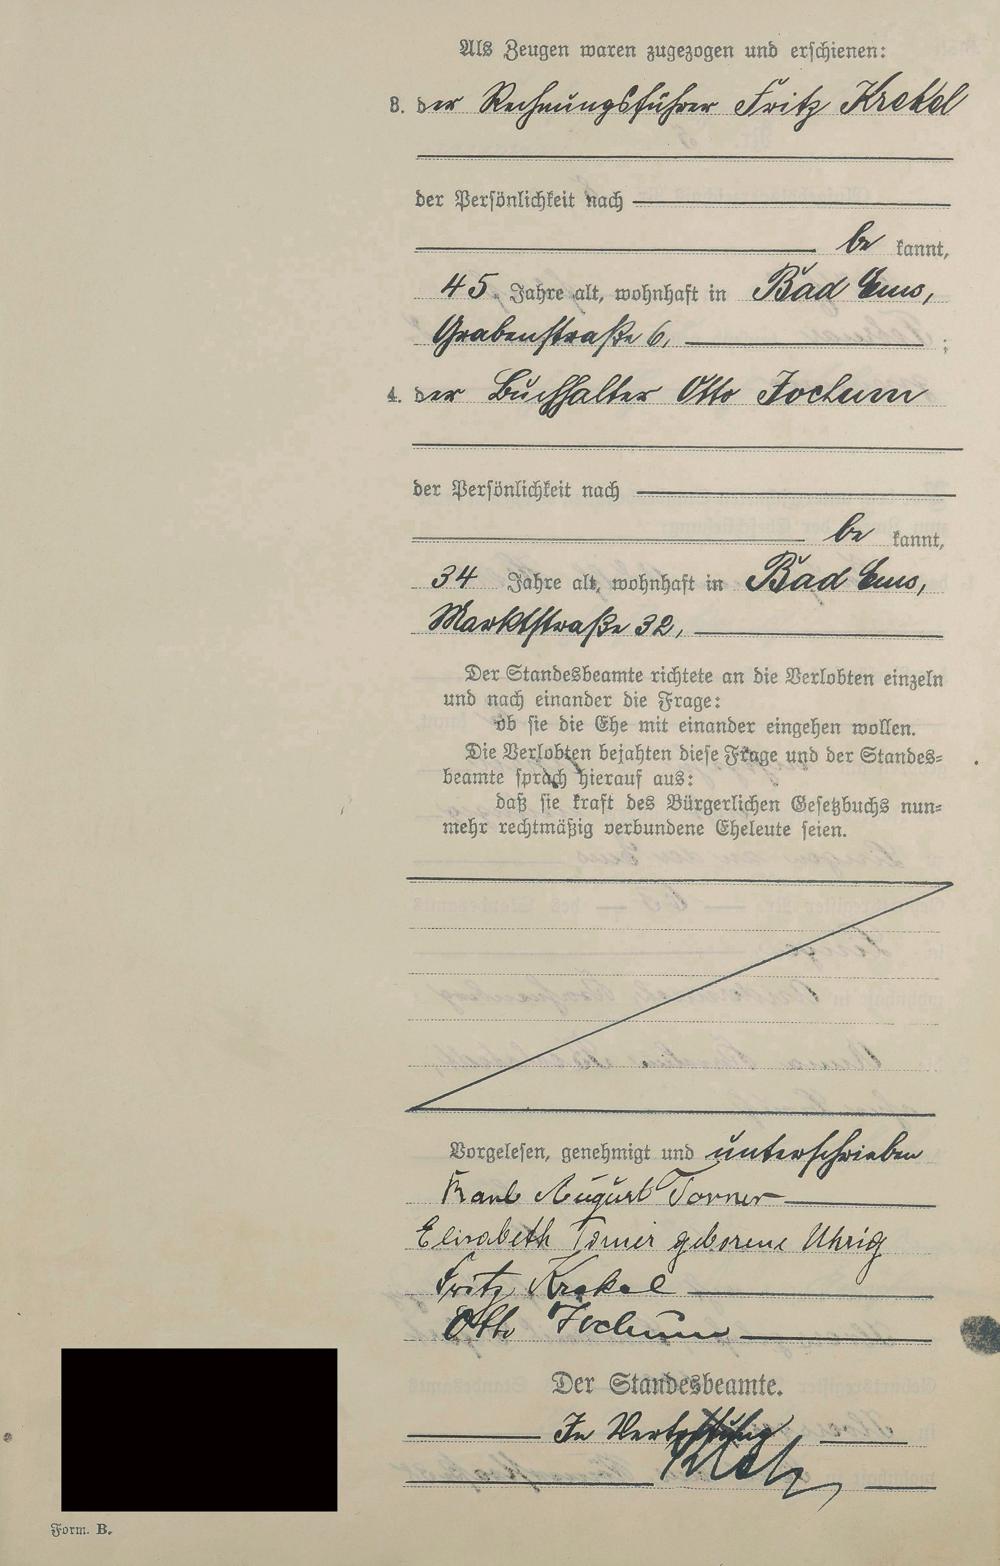 Als Zeugen waren zugezogen und erschienen:
3. der Rechnungsführer Fritz Krekel
der Persönlichkeit nach
be kannt,
45 Jahre alt, wohnhaft in Bad Ems,
Grabenstraße 6, ;
4. der Buchhalter Otto Jochum
der Persönlichkeit nach
be kannt,
34 Jahre alt, wohnhaft in Bad Ems,
Marktstraße 32,
Der Standesbeamte richtete an die Verlobten einzeln
und nach einander die Frage:
ob sie die Ehe mit einander eingehen wollen.
Die Verlobten bejahten diese Frage und der Standes-
beamte sprach hierauf aus:
daß sie kraft des Bürgerlichen Gesetzbuchs nun-
mehr rechtmäßig verbundene Eheleute seien.
Vorgelesen, genehmigt und unterschrieben
Karl August Torner
Elisabeth Torner geborene Uhrig
Fritz Krekel
Otto Jochum
Der Standesbeamte.
In Vertretung
Form. B.